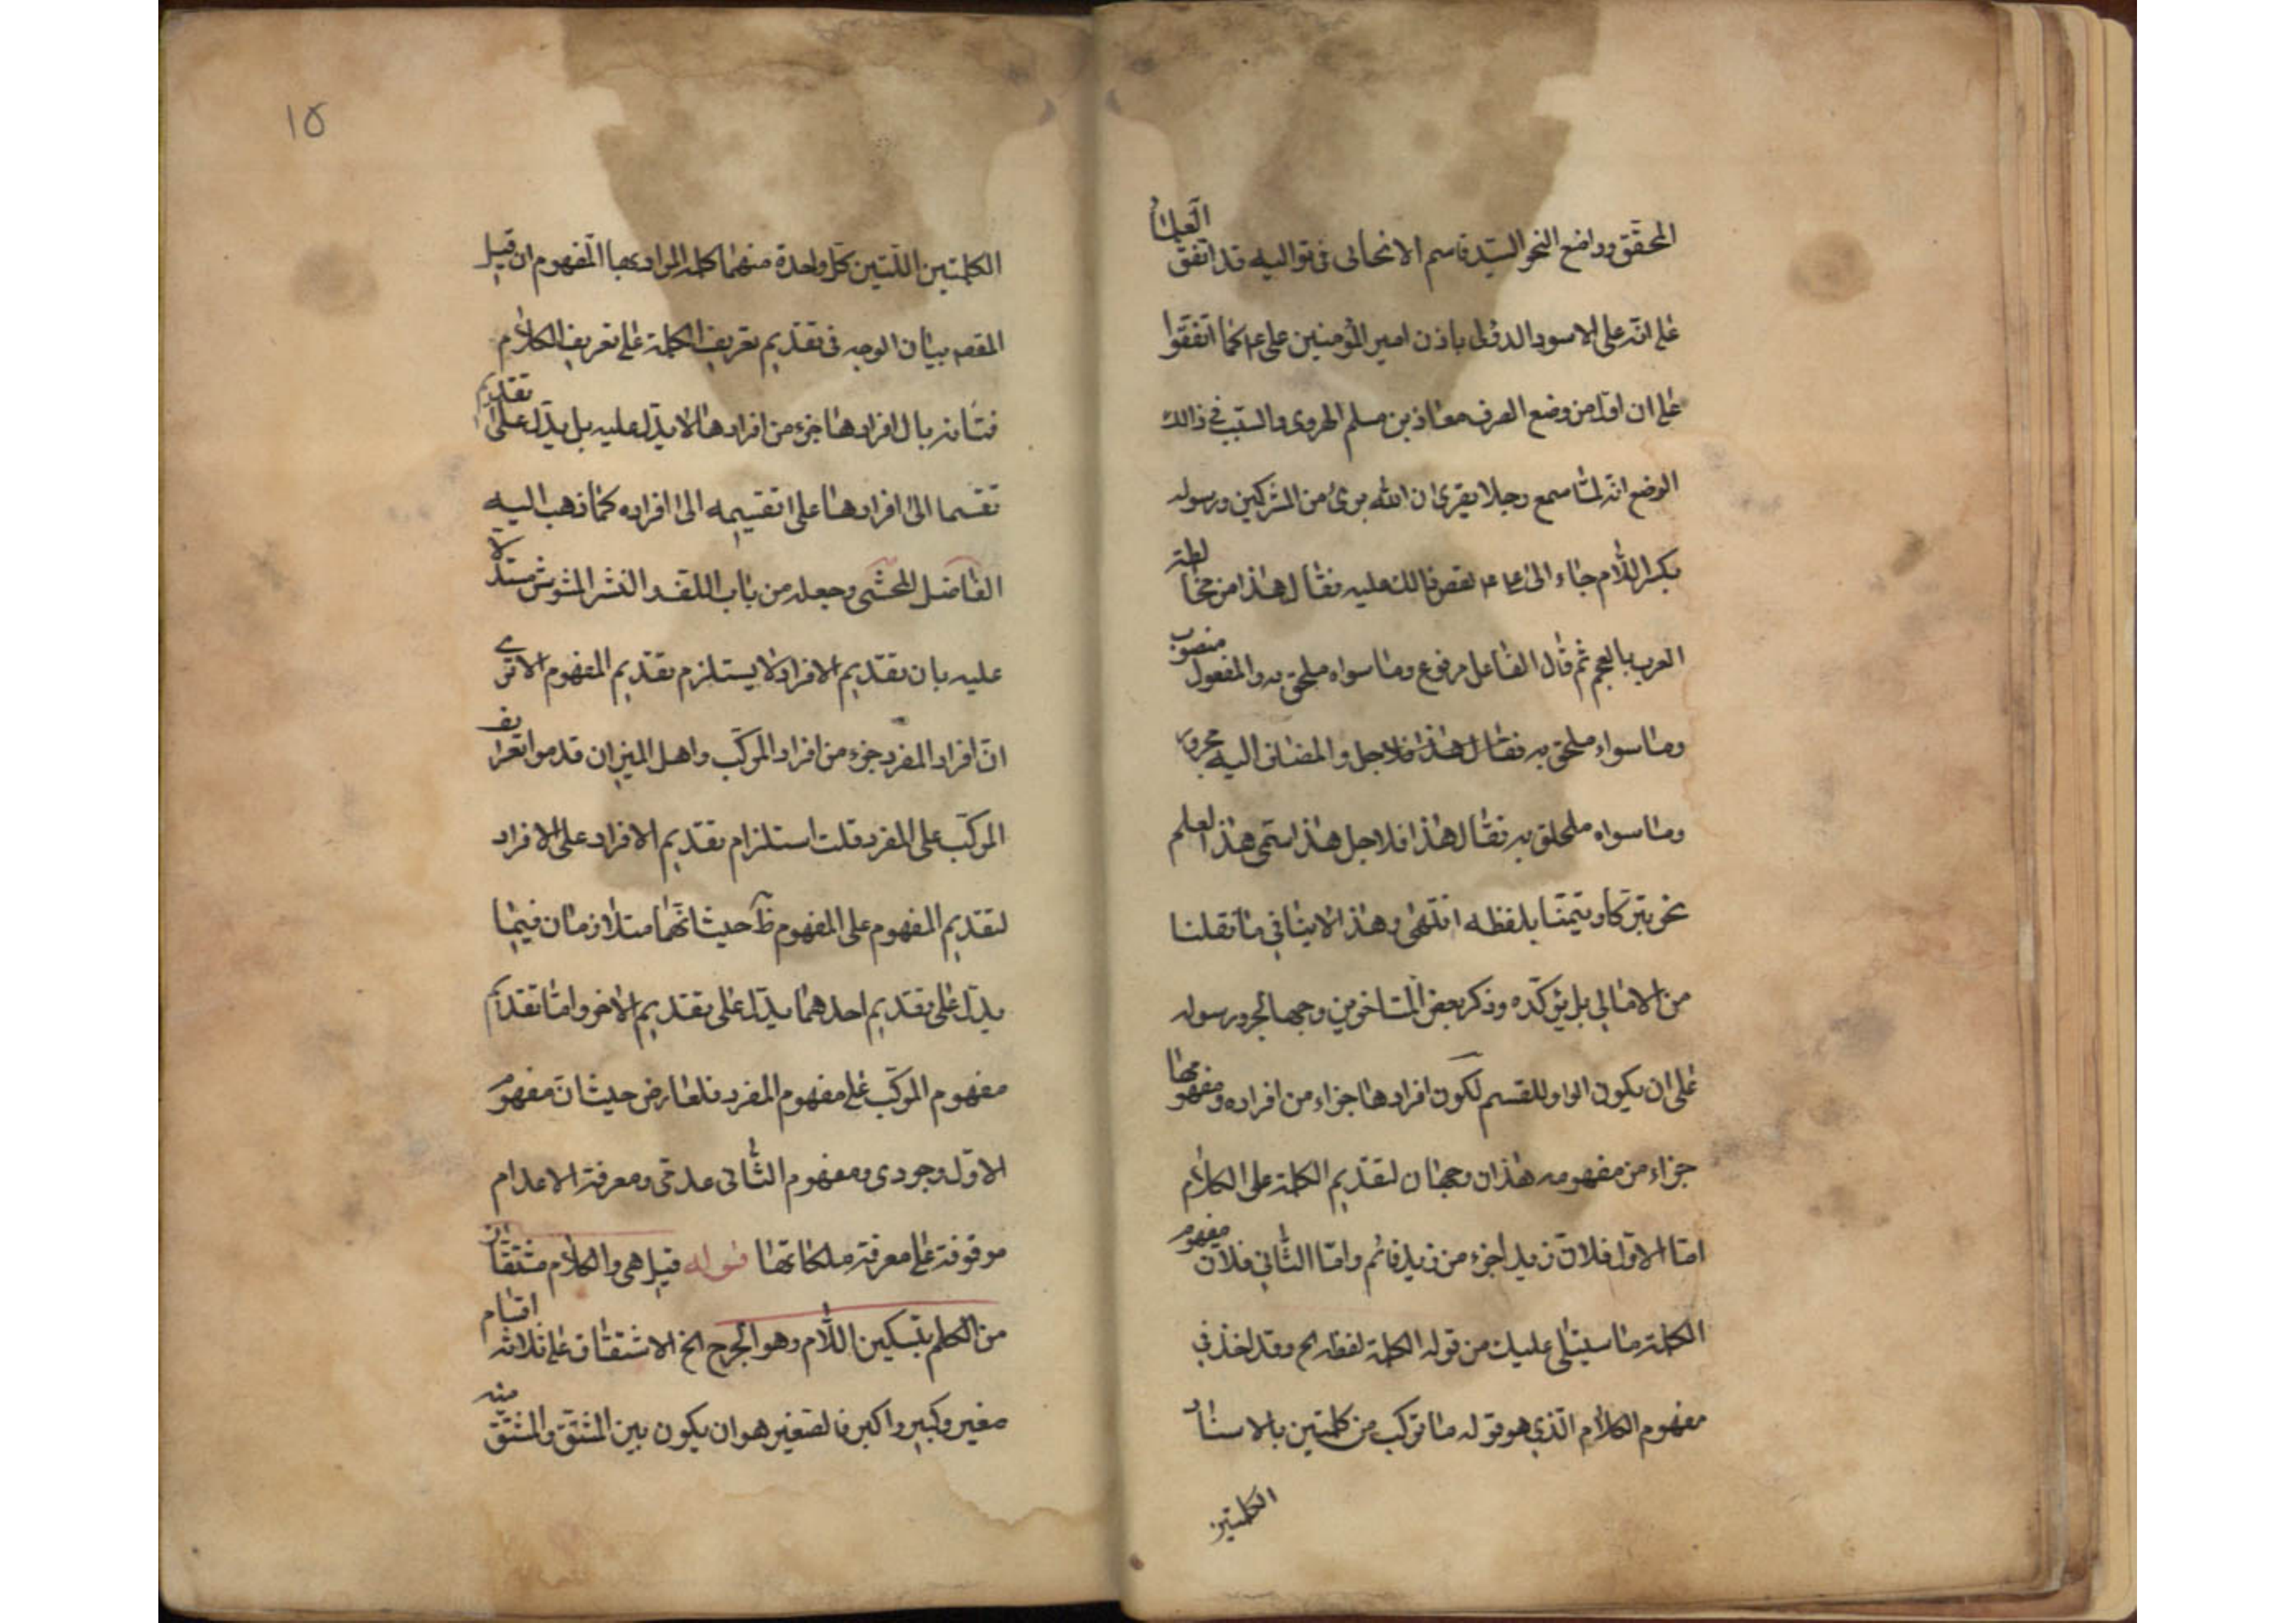 المحقق وواضع النحو السيد قاسم الانحائى فى تواليه قد اتفق العلماء
على انه على الاسود الدؤلى باذن امير المؤمنين على ع كما اتفقوا
على ان اول من وضع الصرف معاذ بن مسلم الهروى والسبب فى ذالك
الوضع انه لما سمع رجلا يقرئ ان الله برئ من المشركين ورسوله
بكسر اللام جاء الى على ع فقص ذالك عليه فقال هذا من مخالطة
العرب بالعجم ثم قال الفاعل مرفوع وما سواه ملحق به والمفعول منصوب
وما سواء ملحق به فقال هذا فلاجل والمضاف اليه مجرور
وما سواه ملحلق به فقال هذا فلاجل هذا سمى هذا العلم
نحو تبركا وتيمنا بلفظه انتهى وهذا لا ينافى ما نقلنا
من الامالى بل يؤكده وذكر بعض المتاخرين وجها لجر ورسوله
على ان يكون الواو للقسم لكون افرادها جزاء من افراده ومفهومها
جزاء من مفهومه هذان وجهان لتقديم الكلمة على الكلام
اما الاول فلان زيدا جزء من زيد قائم واما الثانى فلان مفهوم
الكلمة ما سيتلى عليك من قوله الكلمة لفظ الخ وقد اخذ فى
مفهوم الكلام الذى هو قوله ما تركب من كلمتين بالاسناد
الكلمتين
١٥
الكلمتين اللتين كل واحدة منهما كلمة المراد بها المفهوم ان قيل
المقصد بيان الوجه فى تقديم تعريف الكلمة على تعريف الكلام
بال افرادها جزء من افرادها لا يدل عليه بل يدل على تقديم
تقسما الى افرادها على تقسيمه الى افراده كما ذهب اليه
الفاضل المحشى وجعله من باب اللف والنشر المشوش مستدلا
عليه بان تقديم الافراد لا يستلزم تقديم المفهوم الا ترى
ان افراد المفرد جزء من افراد المركب واهل الميزان قدموا تعريف
المركب على المفرد قلت استلزام تقديم الافراد على الافراد
لتقديم المفهوم على المفهوم ظ حيث انهما متلازمان فيما
يدل على تقديم احدهما يدل على تقديم الاخر واما تقديم
مفهوم المركب على مفهوم المفرد فلعارض حيث ان مفهوم
الاول وجودى ومفهوم الثانى عدمى ومعرفة الاعدام
موقوفة على معرفة ملكاتها قوله قيل هى والكلام مشتقان
من الكلم بتسكين اللام وهو الجرح الخ الاشتقاق على ثلاثه اقسام
صغير وكبير واكبر فالصغير هو ان يكون بين المشتق والمشتق منه